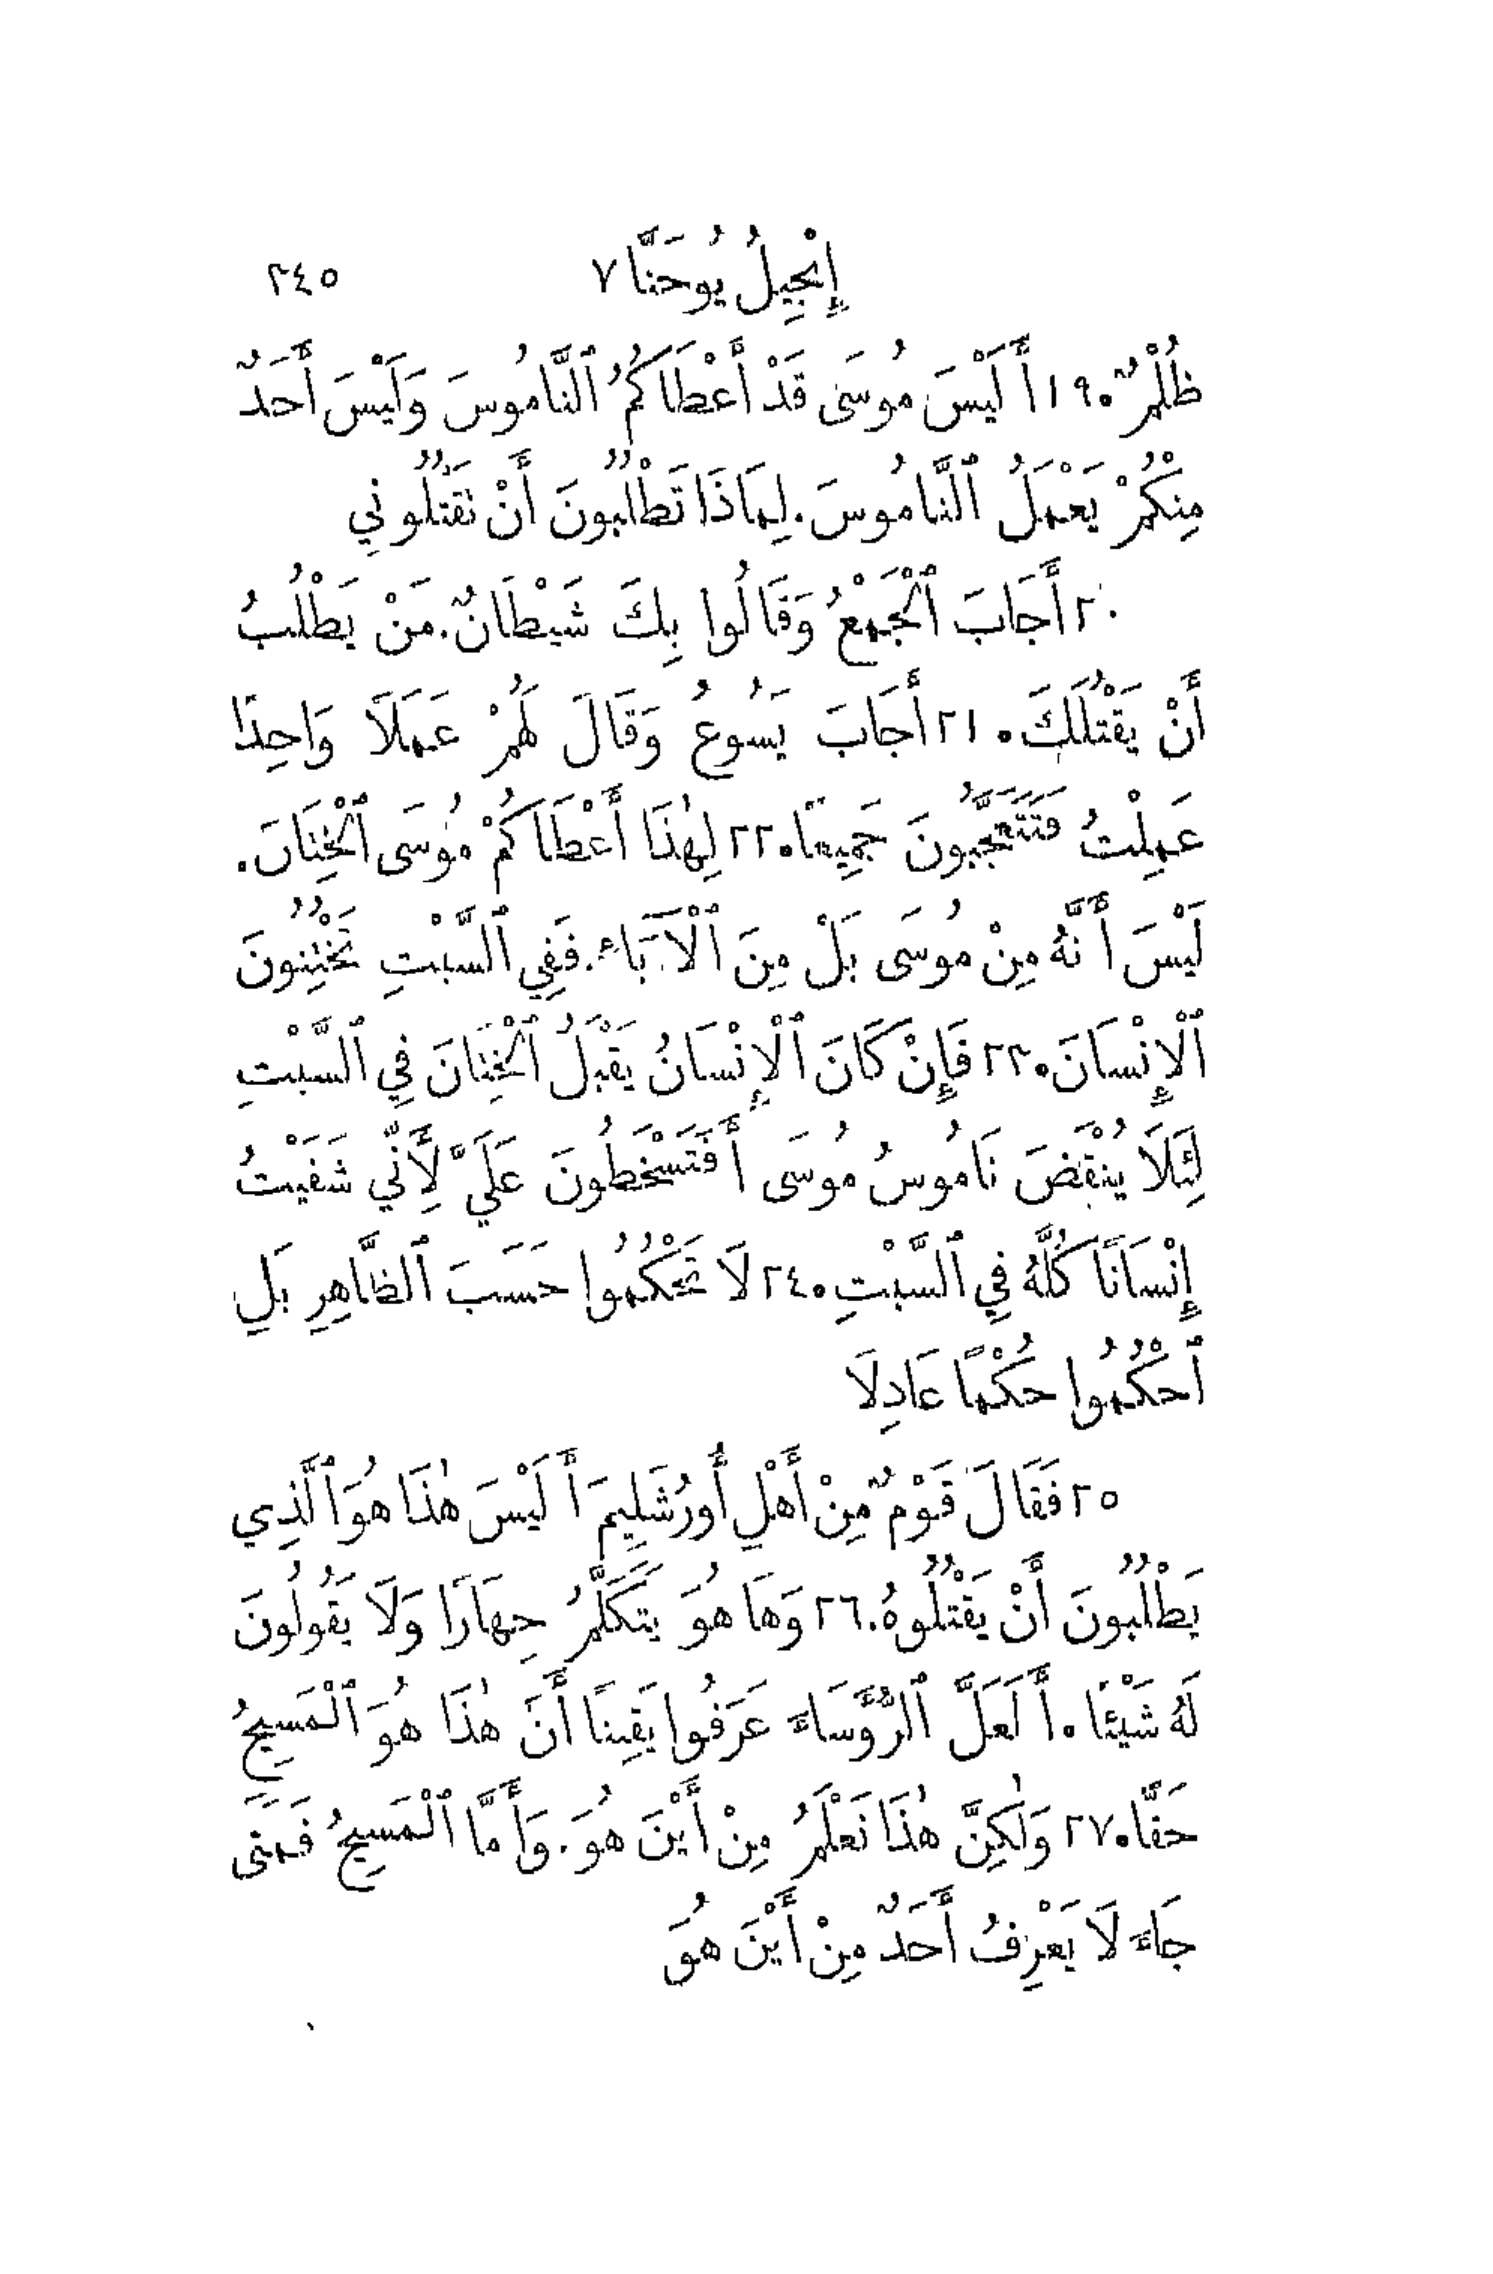 إِنْجِيلُ يُوحَنَّا ٧ ٢٤٥
ظُلْمٌ. ١٩ أَلَيْسَ مُوسَى قَدْ أَعْطَاكُمُ ٱلنَّامُوسَ وَلَيْسَ أَحَدٌ
مِنْكُمْ يَعْمَلُ ٱلنَّامُوسَ. لِمَاذَا تَطْلُبُونَ أَنْ تَقْتُلُونِي
٢٠ أَجَابَ ٱلْجَمْعُ وَقَالُوا بِكَ شَيْطَانٌ. مَنْ يَطْلُبُ
أَنْ يَقْتُلَكَ. ٢١ أَجَابَ يَسُوعُ وَقَالَ لَهُمْ عَمَلًا وَاحِدًا
عَمِلْتُ فَتَتَعَجَّبُونَ جَمِيعًا. ٢٢ لِهٰذَا أَعْطَاكُمْ مُوسَى ٱلْخِتَانَ.
لَيْسَ أَنَّهُ مِنْ مُوسَى بَلْ مِنَ ٱلْآبَاءِ. فَفِي ٱلسَّبْتِ تَخْتِنُونَ
ٱلْإِنْسَانَ. ٢٣ فَإِنْ كَانَ ٱلْإِنْسَانُ يَقْبَلُ ٱلْخِتَانَ فِي ٱلسَّبْتِ
لِئَلَّا يُنْقَضَ نَامُوسُ مُوسَى أَفَتَسْخَطُونَ عَلَيَّ لِأَنِّي شَفَيْتُ
إِنْسَانًا كُلَّهُ فِي ٱلسَّبْتِ. ٢٤ لَا تَحْكُمُوا حَسَبَ ٱلظَّاهِرِ بَلِ
ٱحْكُمُوا حُكْمًا عَادِلًا
٢٥ فَقَالَ قَوْمٌ مِنْ أَهْلِ أُورُشَلِيمَ أَلَيْسَ هٰذَا هُوَ ٱلَّذِي
يَطْلُبُونَ أَنْ يَقْتُلُوهُ. ٢٦ وَهَا هُوَ يَتَكَلَّمُ جِهَارًا وَلَا يَقُولُونَ
لَهُ شَيْئًا. أَلَعَلَّ ٱلرُّؤَسَاءَ عَرَفُوا يَقِينًا أَنَّ هٰذَا هُوَ ٱلْمَسِيحُ
حَقًّا. ٢٧ وَلٰكِنَّ هٰذَا نَعْلَمُ مِنْ أَيْنَ هُوَ. وَأَمَّا ٱلْمَسِيحُ فَمَتَى
جَاءَ لَا يَعْرِفُ أَحَدٌ مِنْ أَيْنَ هُوَ